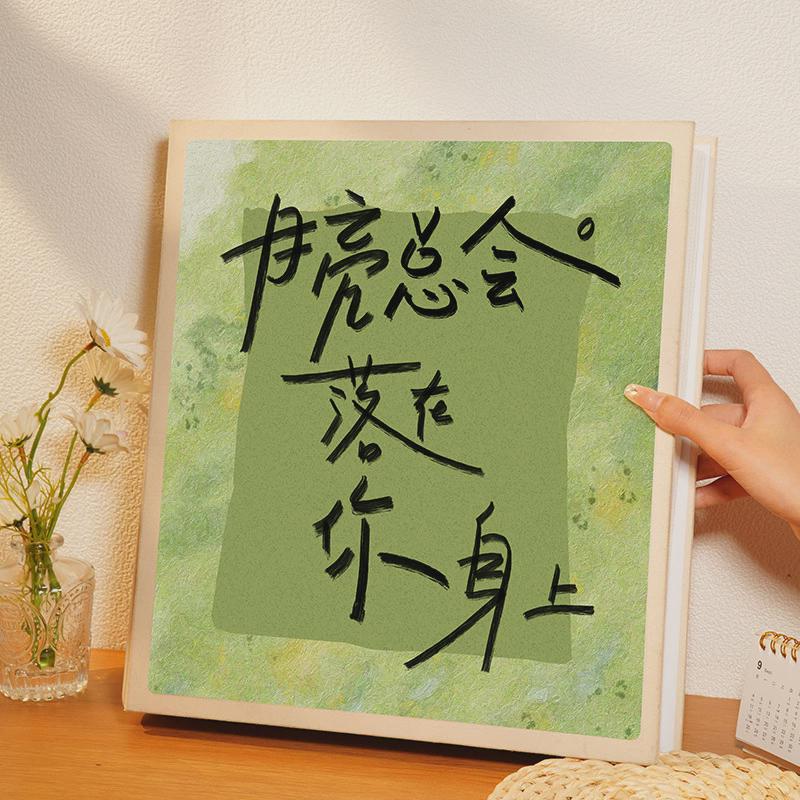 月亮总会。
落在
你身上
9